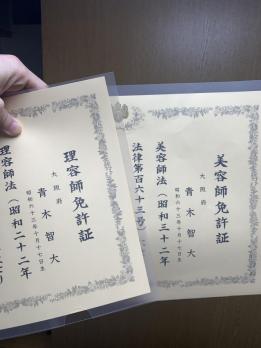 美容師免許証
大阪府
青木智大
昭和六十三年十月十七日生
美容師法(昭和三十二年
法律第百六十三号)
理容師免許証
大阪府
青木智大
昭和六十三年十月十七日生
理容師法(昭和二十二年